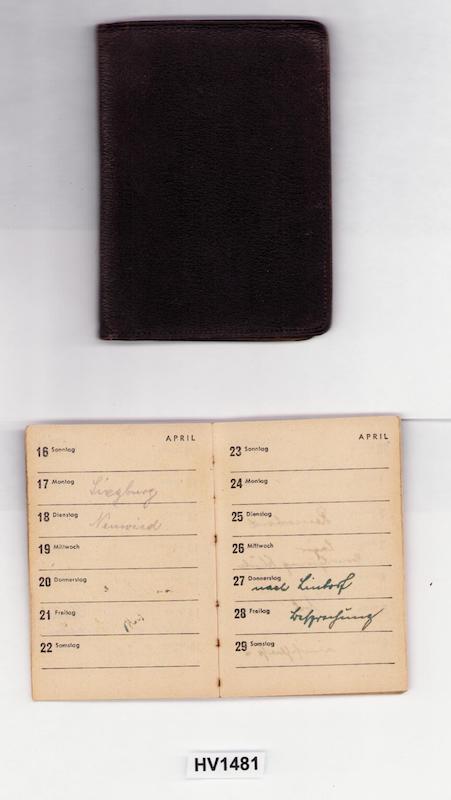 APRIL
16 Sonntag
17 Montag
Siegburg
18 Dienstag
Neuwied
19 Mittwoch
20 Donnerstag
21 Freitag
22 Samstag
APRIL
23 Sonntag
24 Montag
25 Dienstag
26 Mittwoch
27 Donnerstag
nach Lindorf
28 Freitag
Besprechung
29 Samstag
HV1481